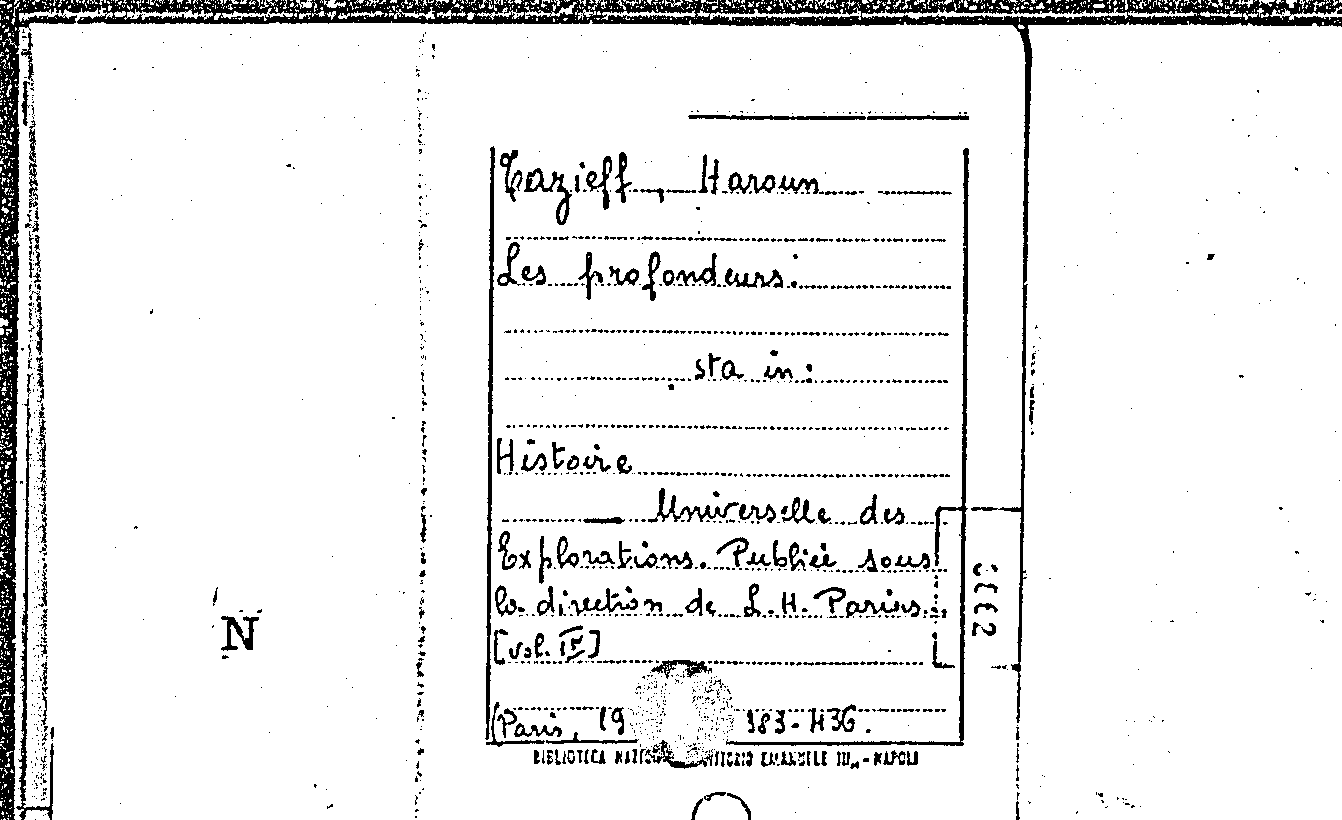 Tazieff, Haroun
Les profondeurs.
sta in:
Histoire
Universelle des
Explorations. Publiée sous
la direction de L. H. Parias...
[vol. IV]
N
(Paris, 19 383-436.
BIBLIOTECA EMANUELE III - NAPOLI